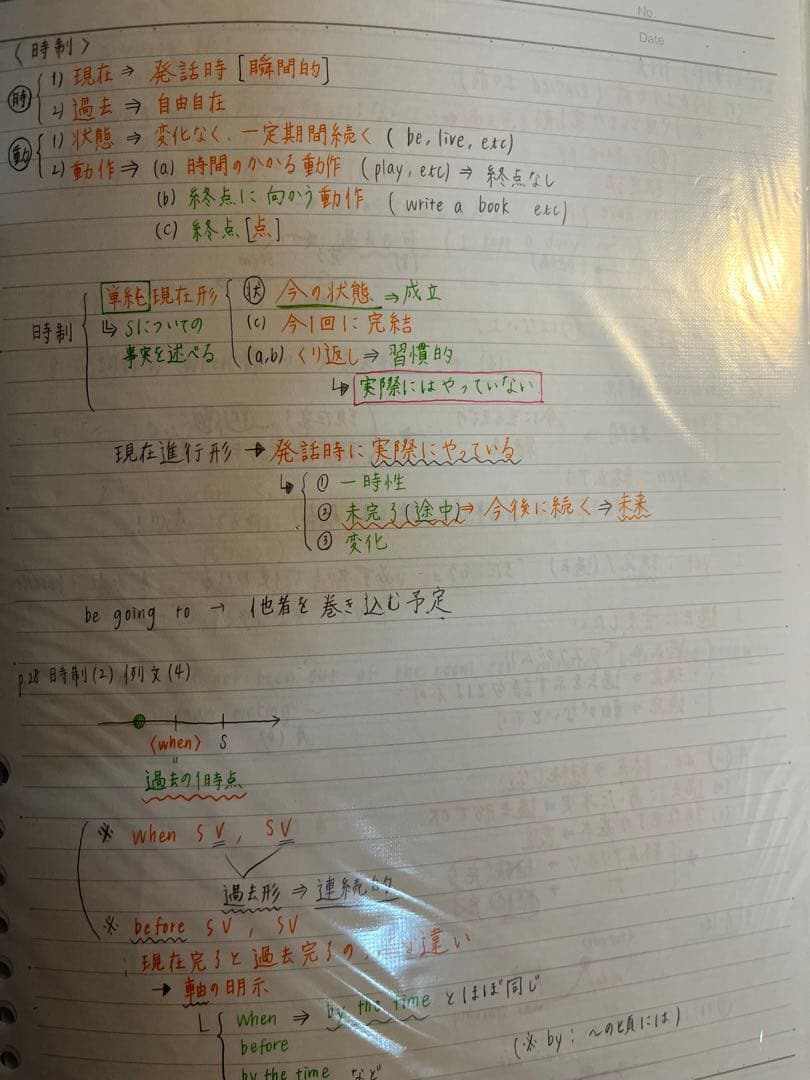 No.
Date
〈時制〉
時 1) 現在 ⇒ 発話時 [瞬間的]
2) 過去 ⇒ 自由自在
動 1) 状態 ⇒ 変化なく、一定期間続く (be, live, etc)
2) 動作 ⇒ (a) 時間のかかる動作 (play, etc) ⇒ 終点なし
(b) 終点に向かう動作 (write a book etc)
(c) 終点 [点]
単純現在形 状 今の状態 ⇒ 成立
時制 ↳ Sについての (c) 今1回に完結
事実を述べる (a,b) くり返し ⇒ 習慣的
↳ 実際にはやっていない
現在進行形 → 発話時に実際にやっている
↳ ① 一時性
② 未完了(途中) ⇒ 今後に続く ⇒ 未来
③ 変化
be going to → 他者を巻き込む予定
p.28 時制(2) 例文(4)
〈when〉 S
=
過去の1時点
※ when SV, SV
過去形 ⇒ 連続的
※ before SV, SV
現在完了と過去完了の 違い
→ 軸の明示
when ⇒ by the time とほぼ同じ
before (※ by : 〜の頃には)
by the time など